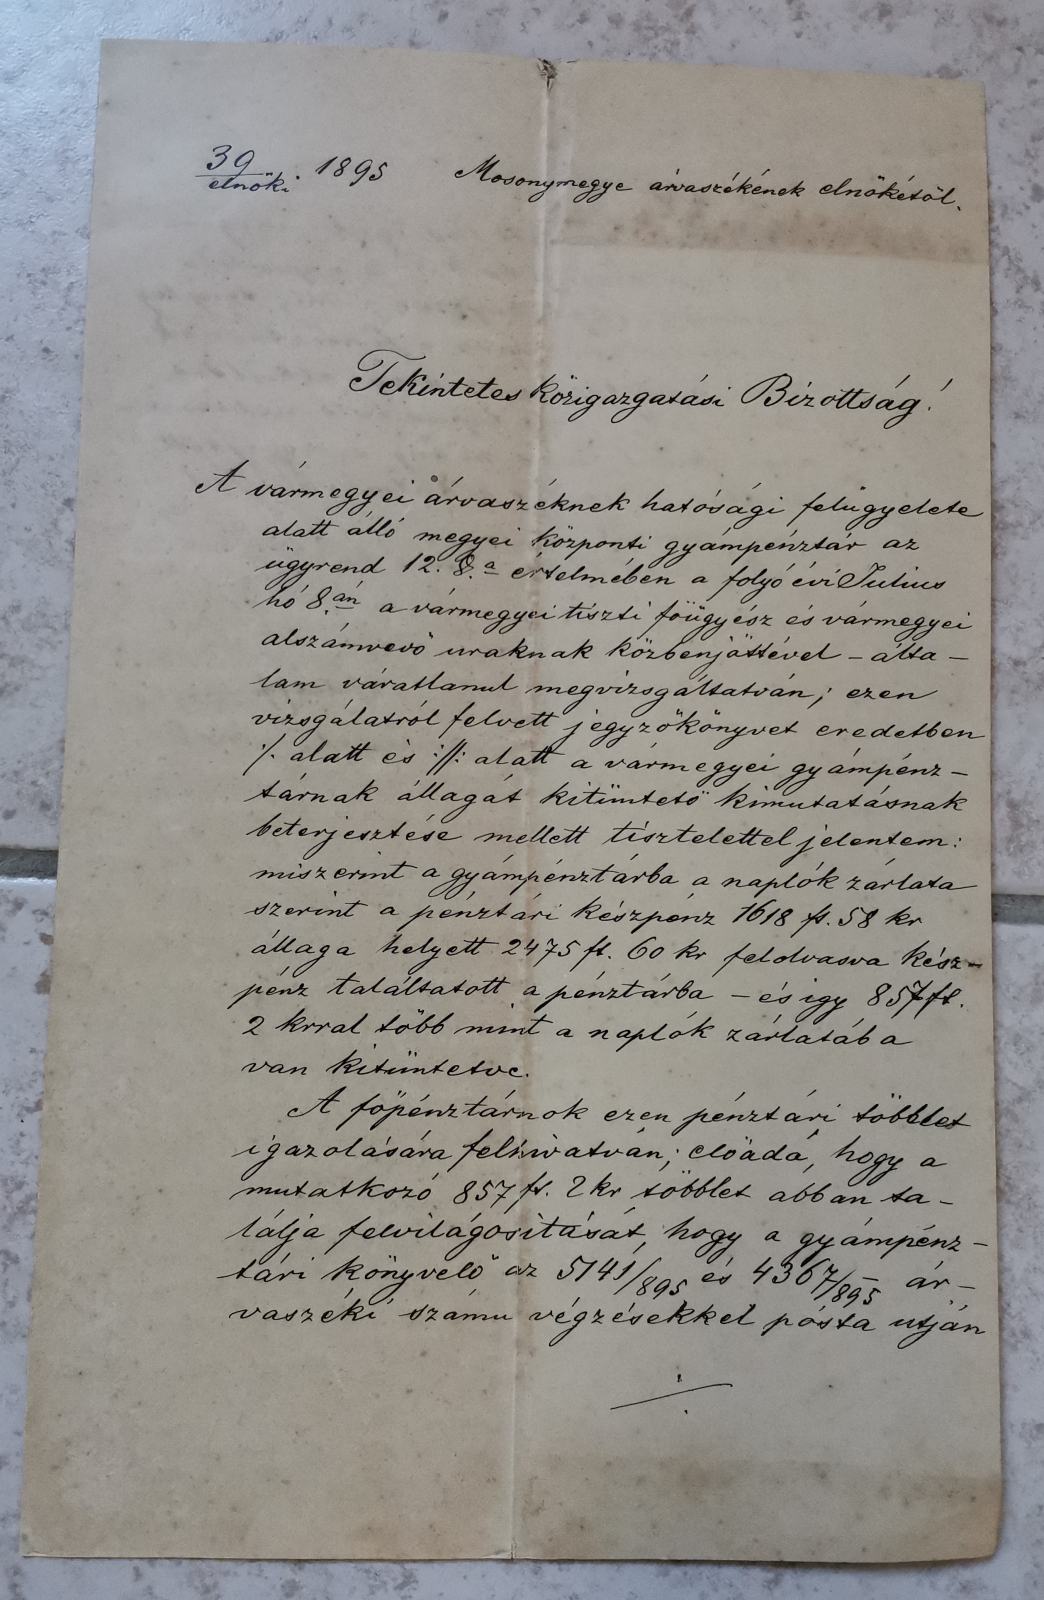 39/elnöki. 1895 Mosonymegye árvaszékének elnökétöl.
Tekintetes közigazgatási Bizottság!
A vármegyei árvaszéknek hatósági felügyelete
alatt álló megyei központi gyámpénztár az
ügyrend 12. §.a értelmében a folyó évi Julius
hó 8.án a vármegyei tiszti föügyész és vármegyei
alszámvevö uraknak közbenjöttével – álta–
lam váratlanul megvizsgáltatván; ezen
vizsgálatról felvett jegyzökönyvet eredetben
·/. alatt és :/|: alatt a vármegyei gyámpénz–
tárnak állagát kitüntetö kimutatásnak
beterjesztése mellett tisztelettel jelentem:
miszerint a gyámpénztárba a naplók zárlata
szerint a pénztári készpénz 1618 ft. 58 kr
állaga helyett 2475 ft. 60 kr feldvasva kész–
pénz találtatott a pénztárba – és igy 857 ft.
2 krral több mint a naplók zárlatába
van kitüntetve.
A föpénztárnok ezen pénztári többlet
igazolására felhivatván; elöadá, hogy a
mutatkozó 857 ft. 2 kr többlet abban ta–
lálja felvilágositását, hogy a gyámpénz–
tári könyvelö az 5141/895 és 4367/895 ár–
vaszéki számu végzésekkel pósta utján
·/.